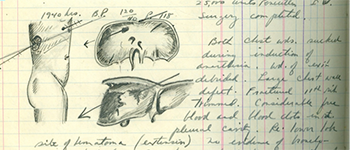 1940 hrs. B.P. 120
25,000 units Penicillin I.V.
surgery completed.
Both chest wds. sucked
during induction of
anesthesia. Wd. of exit
debrided. Large chest wall
defect. Fractured 11th rib
trimmed. Considerable free
blood and blood clots in the
pleural cavity. Rt. lower lobe
site of hematoma (extension) no evidence of